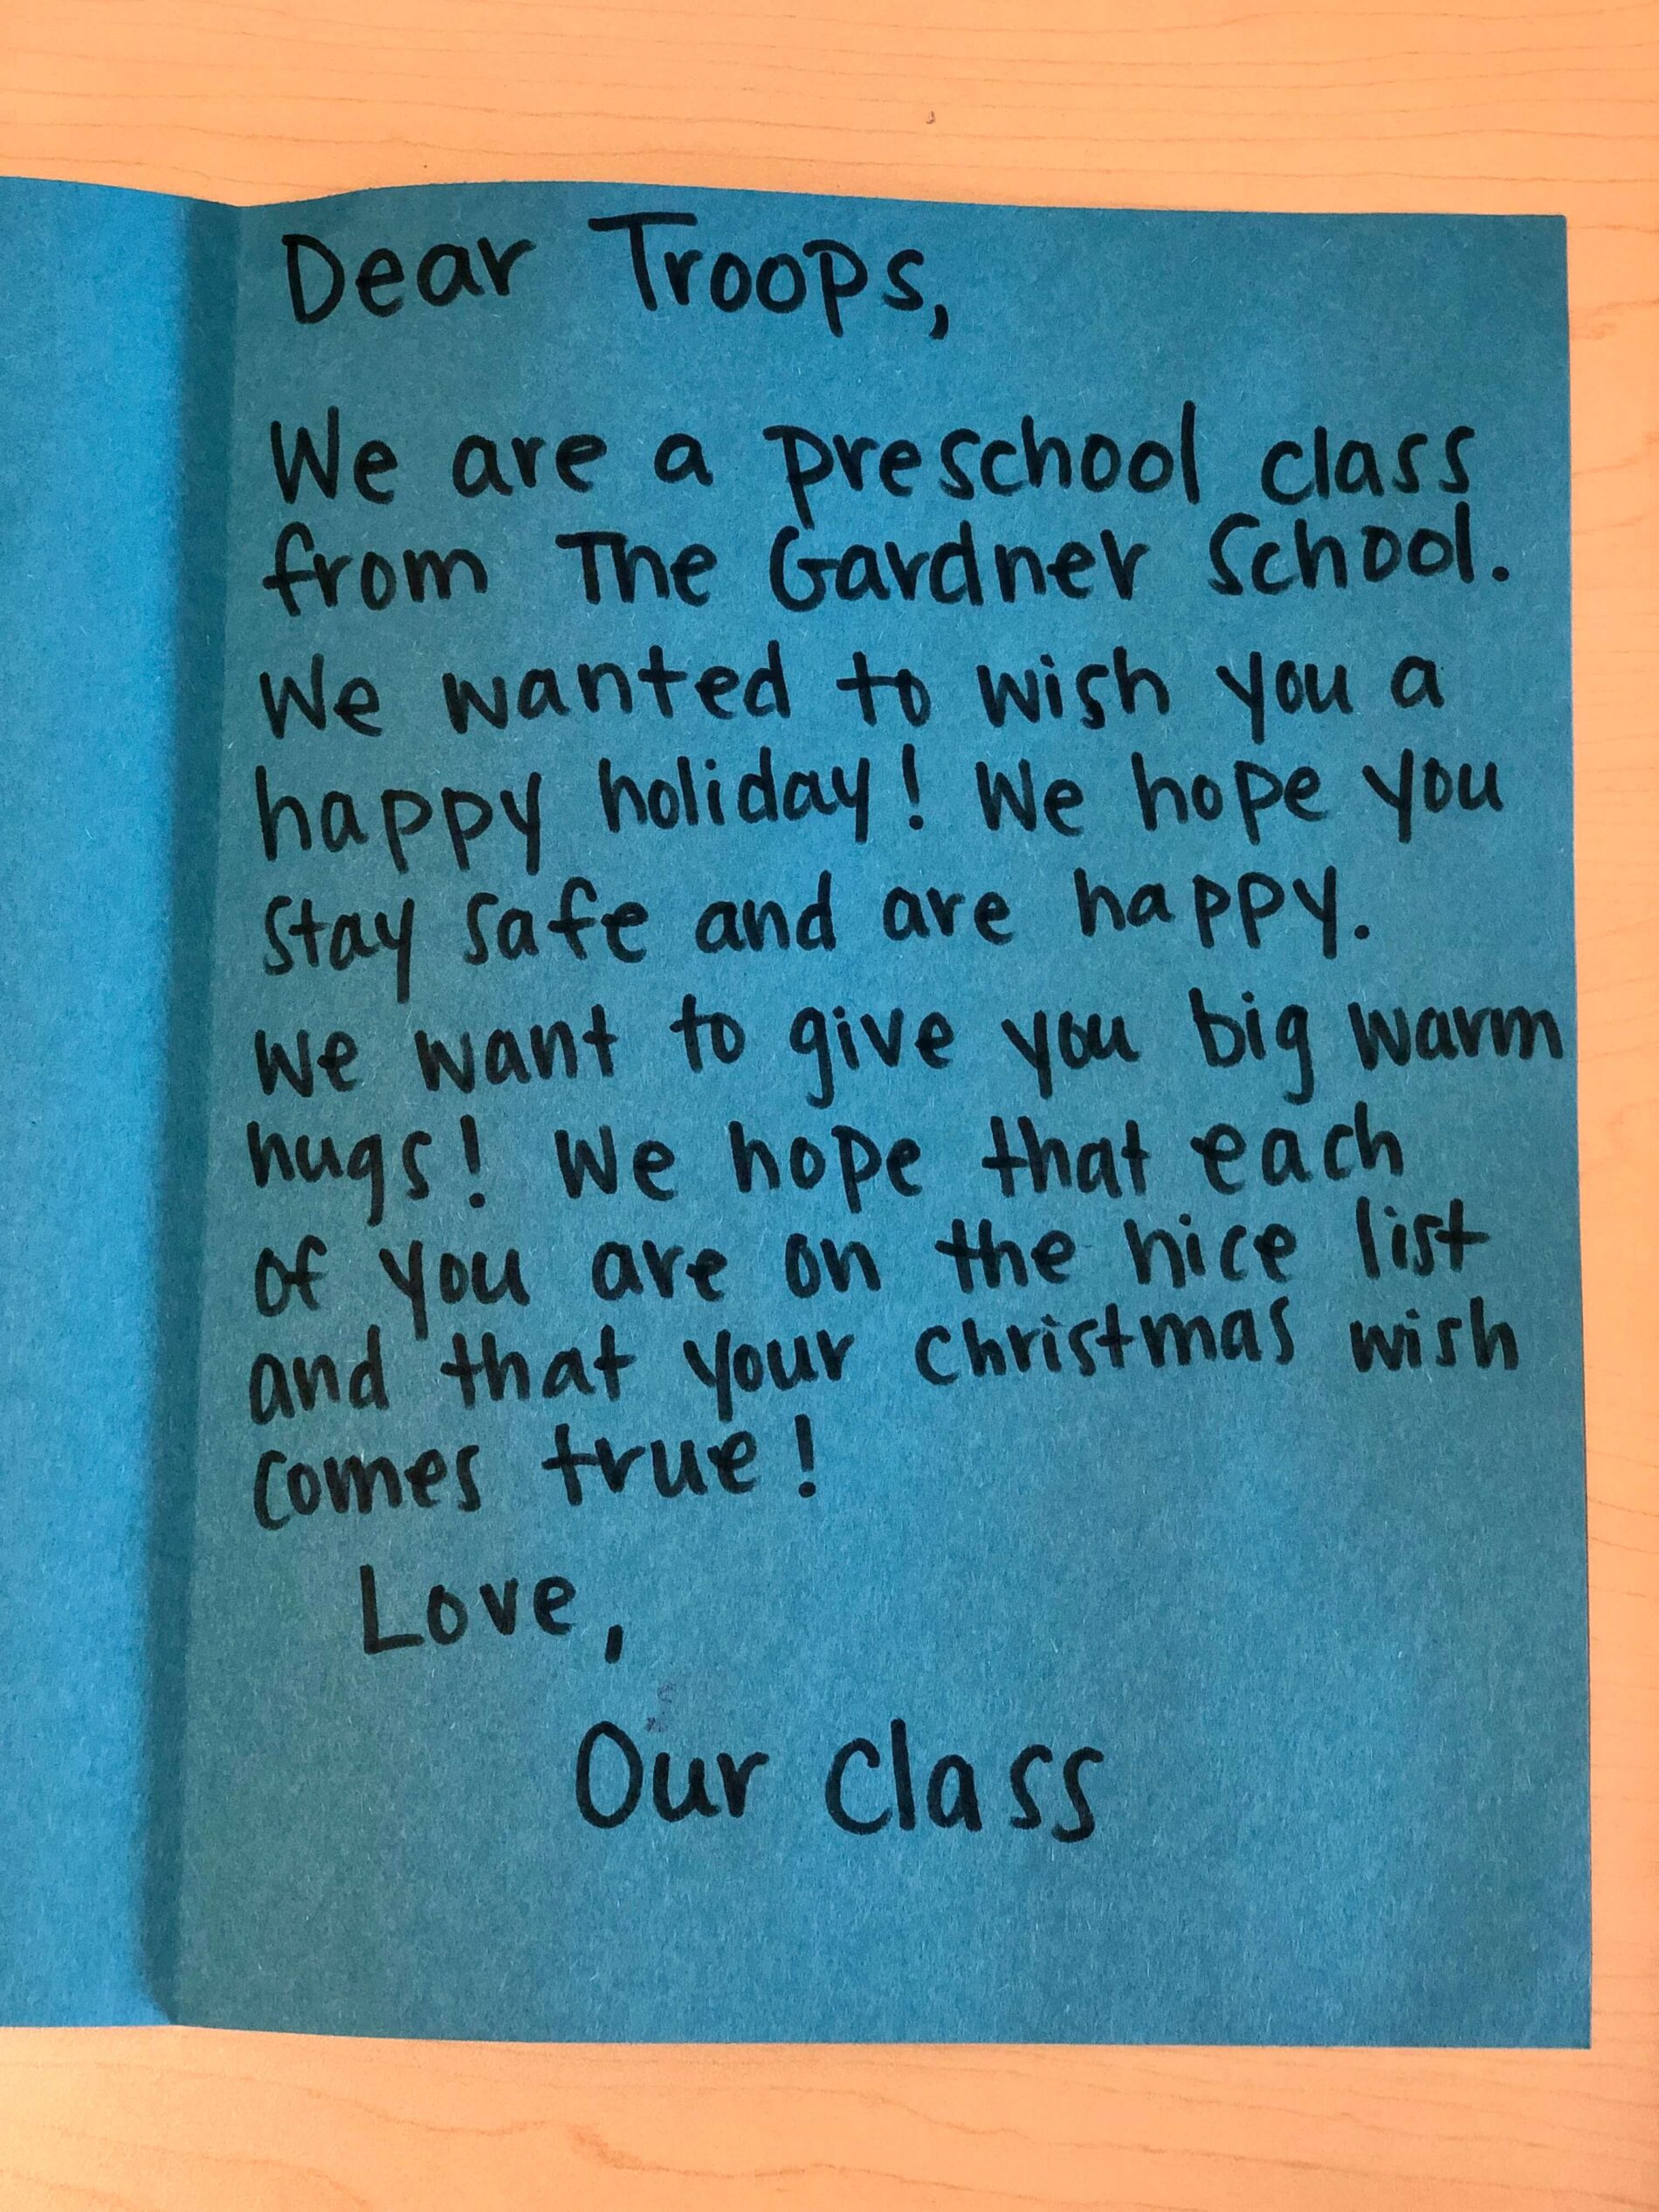 Dear Troops,
We are a preschool class
from The Gardner School.
We wanted to wish you a
happy holiday! We hope you
stay safe and are happy.
We want to give you big warm
hugs! We hope that each
of you are on the nice list
and that your christmas wish
comes true!
Love,
Our Class